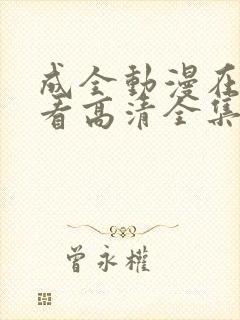 成全動漫在
看高清全集
曾永權